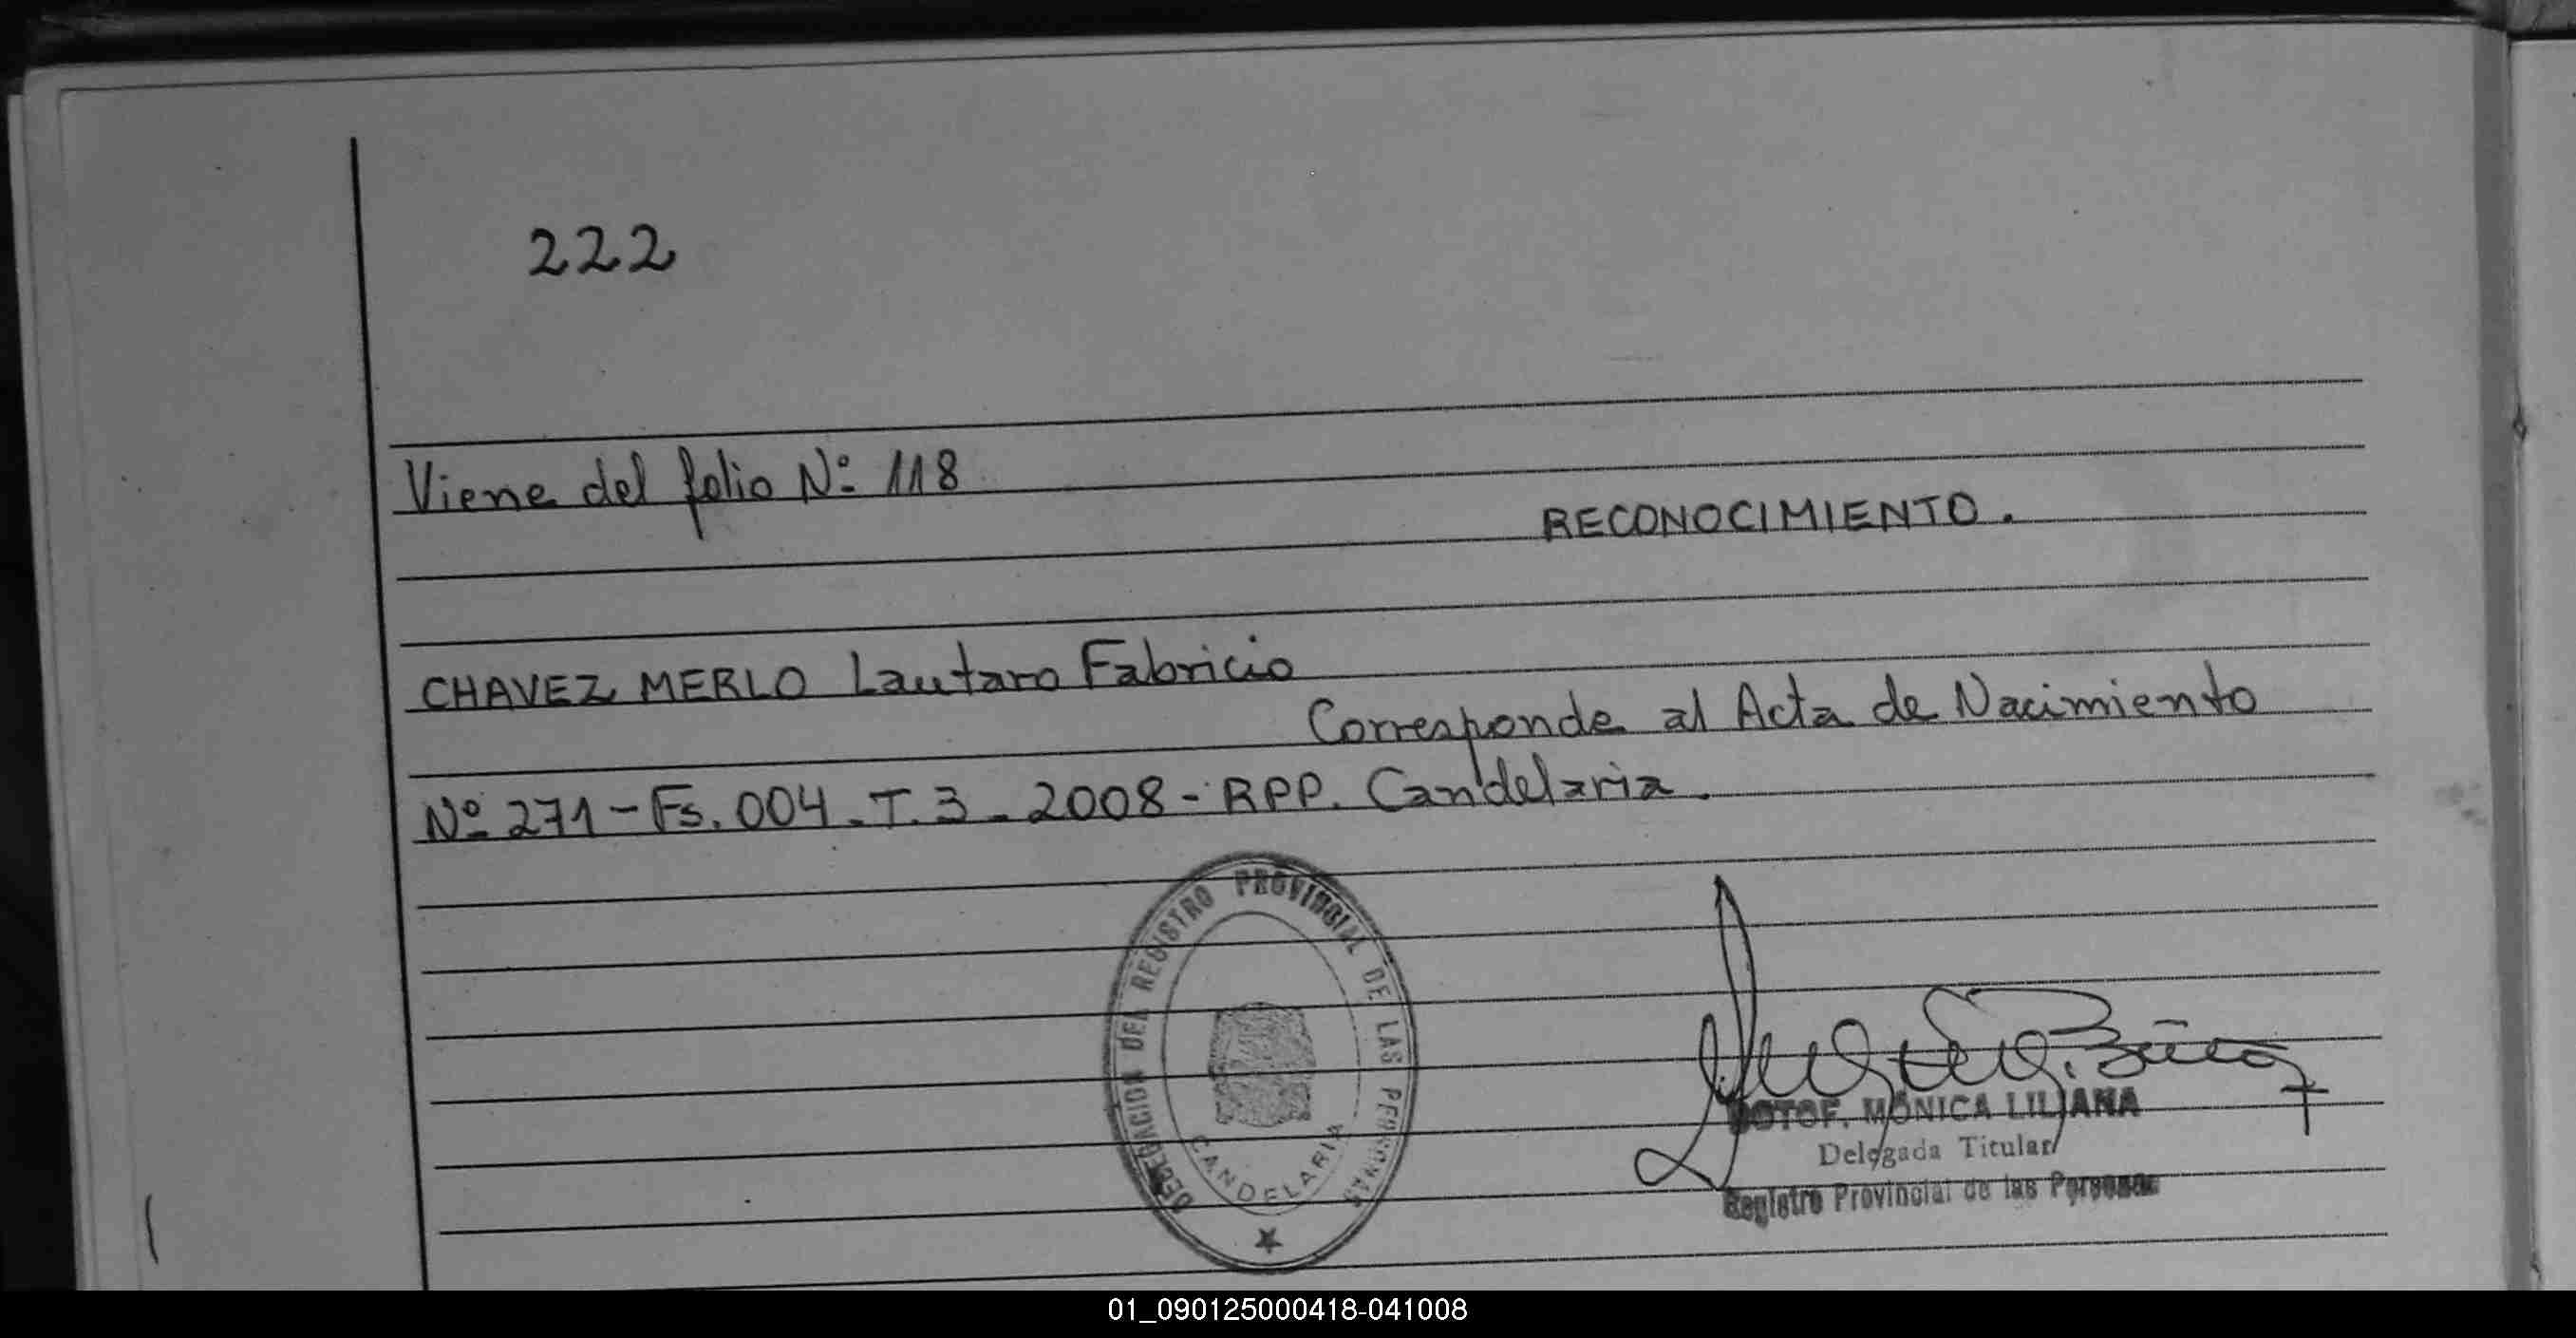 222
Viene del folio Nº 118
RECONOCIMIENTO.
CHAVEZ MERLO Lautaro Fabricio
Corresponde al Acta de Nacimiento
Nº 271 - Fs. 004 - T. 3 - 2008 - RPP. Candelaria.
DELEGACION DEL REGISTRO PROVINCIAL DE LAS PERSONAS
CANDELARIA
MONICA LILIANA
Delegada Titular
Registro Provincial de las Personas
01_090125000418-041008